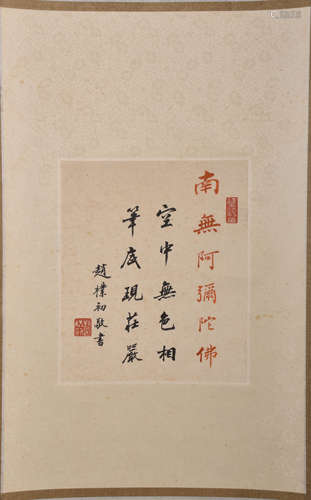 南無阿彌陀佛
空中無色相
筆底現莊嚴
趙樸初敬書